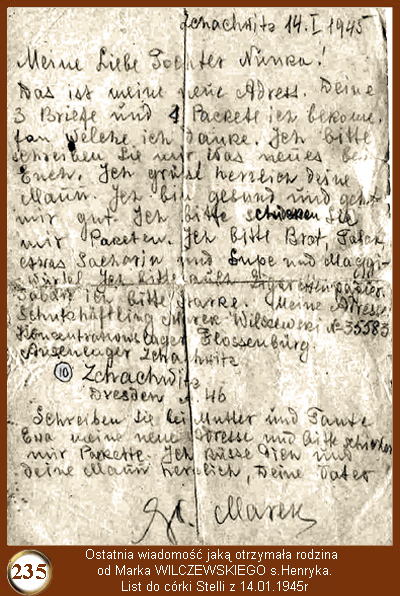 Zchachwitz 14.I 1945
Meine Liebe Tochter Nunka!
Das ist meine neue Adress. Deine
3 Briefe und 4 Packete ich bekome.
fan Welche ich danke. Ich bitte
schreiben Sie mir, was neues bei
Euch. Ich grüsl herzlich deine
Mann. Ich bin gesund und geht
mir gut. Ich bitte schicken Sie
mir Paketen. Ich bitte Brot,
etwas Sacharin und Supe und Maggi-
Würfel Ich bitte auch Zigarettenpapier
ich bitte starke. Meine Adresse
Schutzhäftling Marek Wilczewski № 35583
Konzentrationslager Flossenburg.
Ausenlager Zchachwitz
10 Zchachwitz
Dresden A. 46
Schreiben Sie bei Mutter und Tante
Ewa meine neue Adresse und bitte schicken
mir Packette. Ich küsse Dich und
deine Mann herzlich, Deine Vater
Marek
235
Ostatnia wiadomość jaką otrzymała rodzina
od Marka WILCZEWSKIEGO s.Henryka.
List do córki Stelli z 14.01.1945r